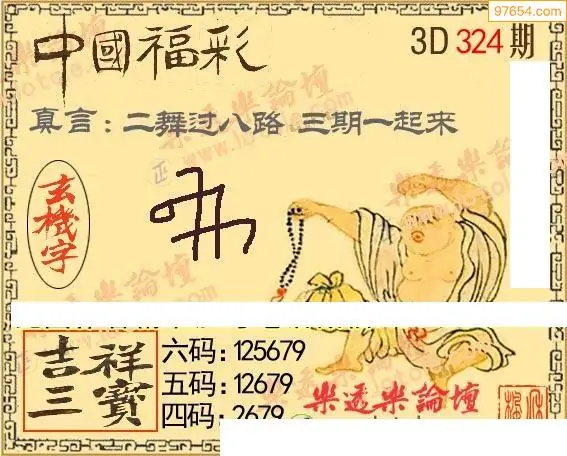 97654.com
中國福彩
3D 324 期
真言:二舞过八路 三期一起来
玄機字
乐透乐論壇
吉祥三寶
六码:125679
五码:12679
四码:2679
樂透樂論壇